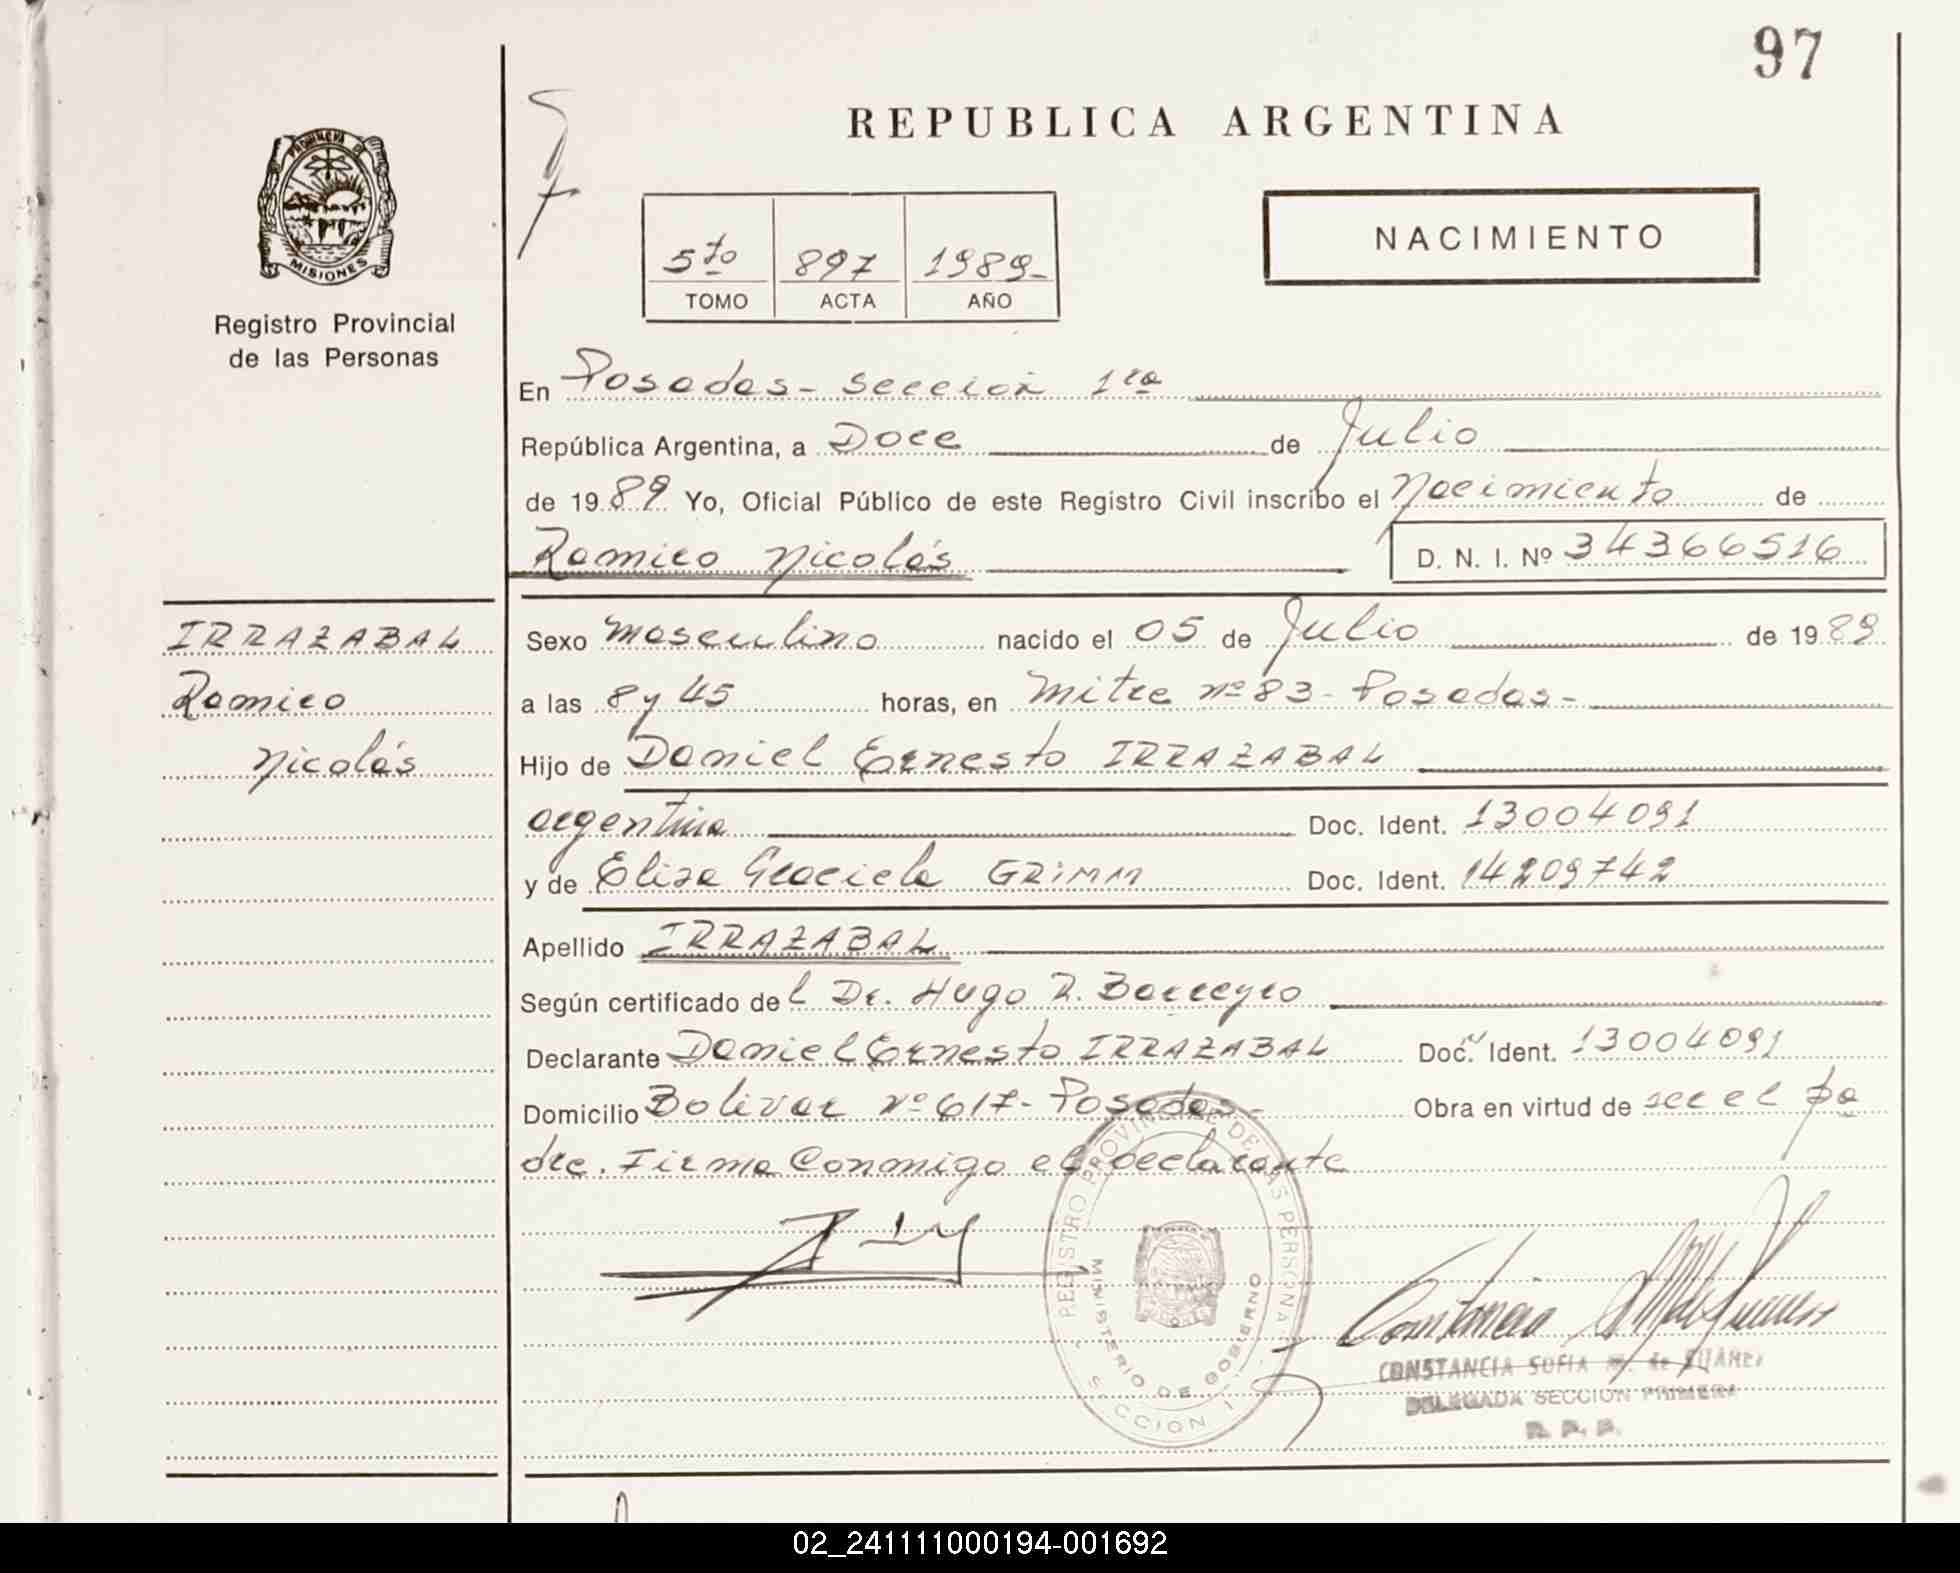 97
REPUBLICA ARGENTINA
PROVINCIA DE
MISIONES
Registro Provincial
de las Personas
5to 897 1989-
TOMO ACTA AÑO
NACIMIENTO
En Posadas - sección 1ra
República Argentina, a Doce de Julio
de 1989 Yo, Oficial Público de este Registro Civil inscribo el nacimiento de
Ramiro Nicolás D. N. I. Nº 34366516
IRRAZABAL
Ramiro
Nicolás
Sexo masculino nacido el 05 de Julio de 1989
a las 8 y 45 horas, en Mitre nº 83 - Posadas -
Hijo de Daniel Ernesto IRRAZABAL
argentina Doc. Ident. 13004091
y de Elisa Graciela GRIMM Doc. Ident. 14209742
Apellido IRRAZABAL
Según certificado del Dr. Hugo R. Barreyro
Declarante Daniel Ernesto IRRAZABAL Doc. Ident. 13004091
Domicilio Bolivar nº 617 - Posadas - Obra en virtud de ser el pa
dre. Firma conmigo el declarante
REGISTRO PROVINCIAL DE LAS PERSONAS
MINISTERIO DE GOBIERNO
SECCIÓN 1
CONSTANCIA SOFIA M. de SUAREZ
DELEGADA SECCION PRIMERA
R. P. P.
02_241111000194-001692